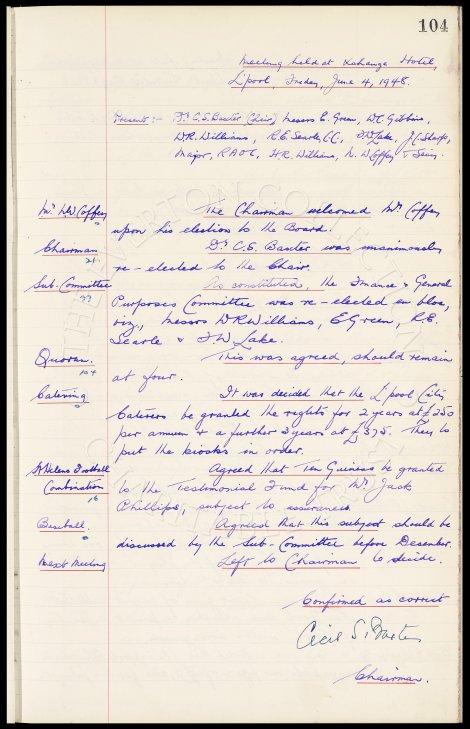 104
Meeting held at Exchange Hotel,
L'pool, Friday, June 4, 1948.
Presents:- Dr C.S. Baxter (Chair) Messrs E. Green, W.C. Gibbins,
W.R. Williams, R.E. Searle C.C., F.W. Lake, J.C. Sharp,
Major, R.A.O.C, H.R. Williams, N.W. Coffey & Secy.
Mr. N.W. Coffey The Chairman welcomed Mr Coffey
upon his election to the Board.
Chairman Dr C.E. Baxter was unanimously
21
re-elected to the Chair.
Sub-Committee As constitution, the Finance & General
97
Purposes Committee was re-elected en bloc,
viz, Messrs W.R. Williams, E. Green, R.E.
Searle & F W Lake.
Quorum. This was agreed, should remain
104
at four.
Catering It was decided that the L'pool City
Caterers be granted the rights for 2 years at £250
per annum & a further 3 years at £375. They to
put the kiosks in order.
St Helens Football Agreed that Ten Guineas be granted
Combination to the Testimonial Fund for Mr. Jack
16
Phillips, subject to assurances.
Baseball. Agreed that this subject should be
discussed by the Sub-Committee before December.
Next Meeting Left to Chairman to decide.
Confirmed as correct
Cecil S. Baxter
Chairman.
THE EVERTON COLLECTION